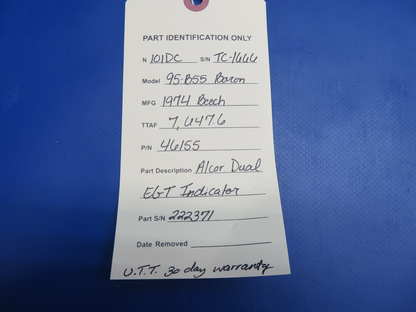 PART IDENTIFICATION ONLY
N 101DC S/N TC-1666
Model 95-B55 Baron
MFG 1974 Beech
TTAF 7,647.6
P/N 46155
Part Description Alcor Dual
EGT Indicator
Part S/N 222371
Date Removed
U.T.T. 30 day warranty